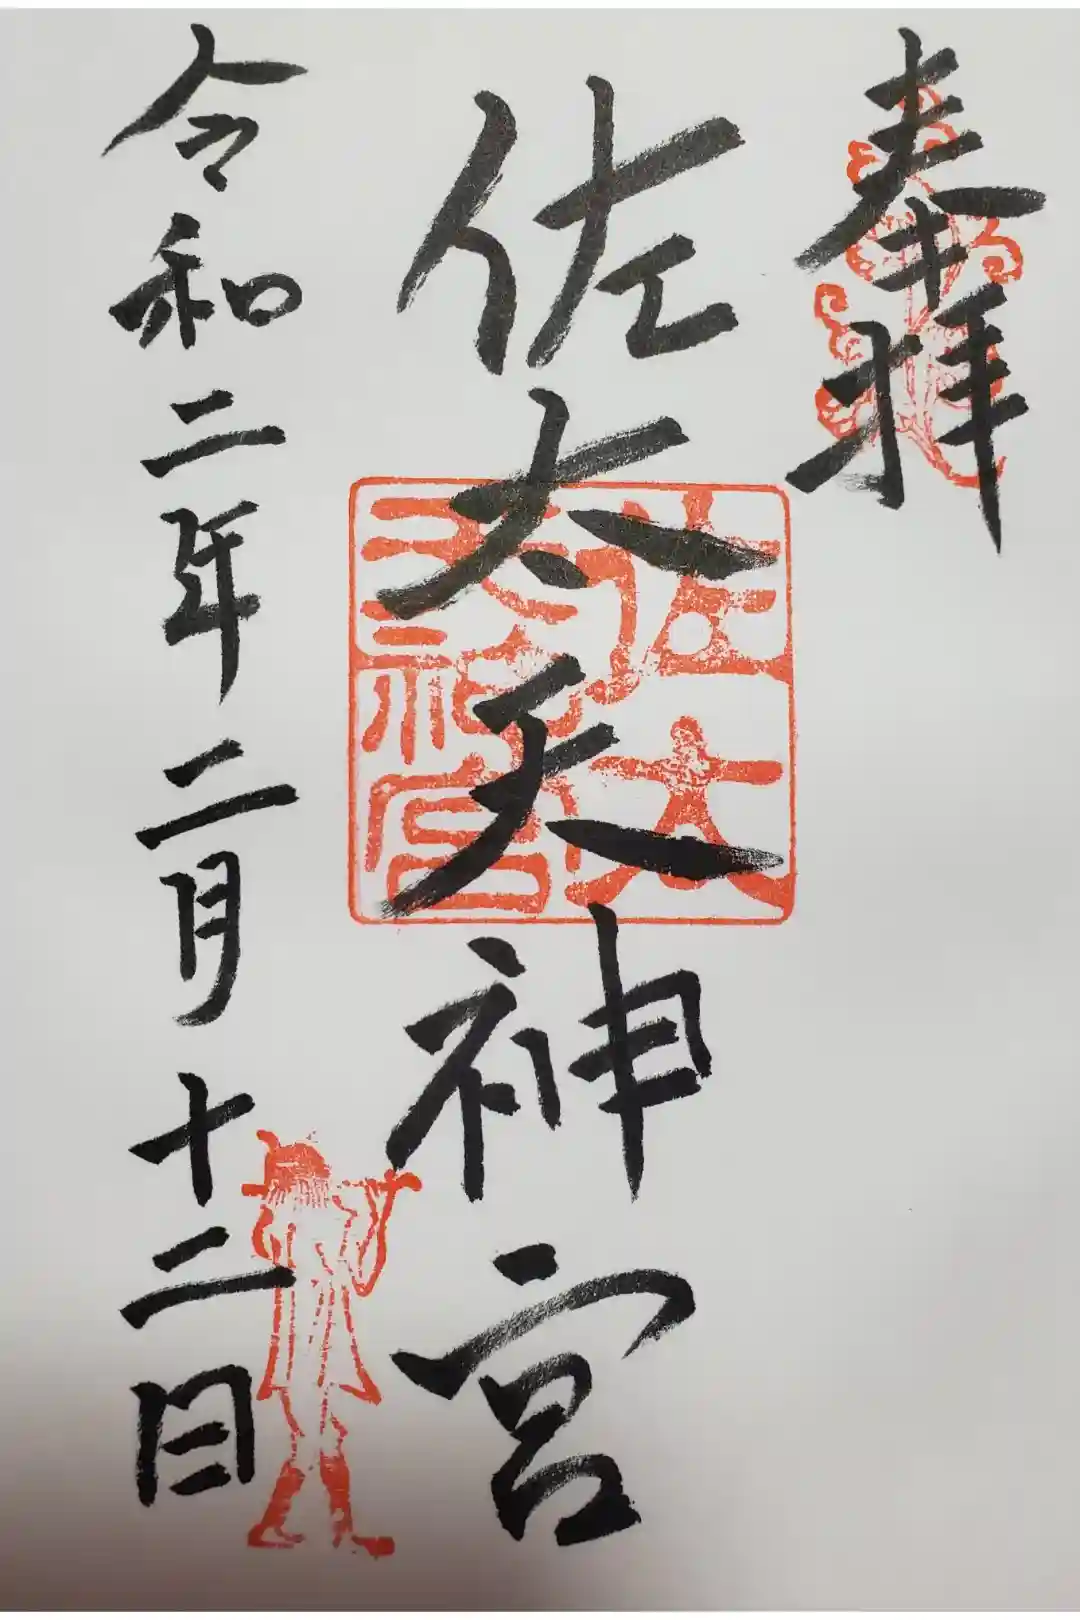 奉拝
佐太天神宮
佐太天神宮
令和二年二月十二日